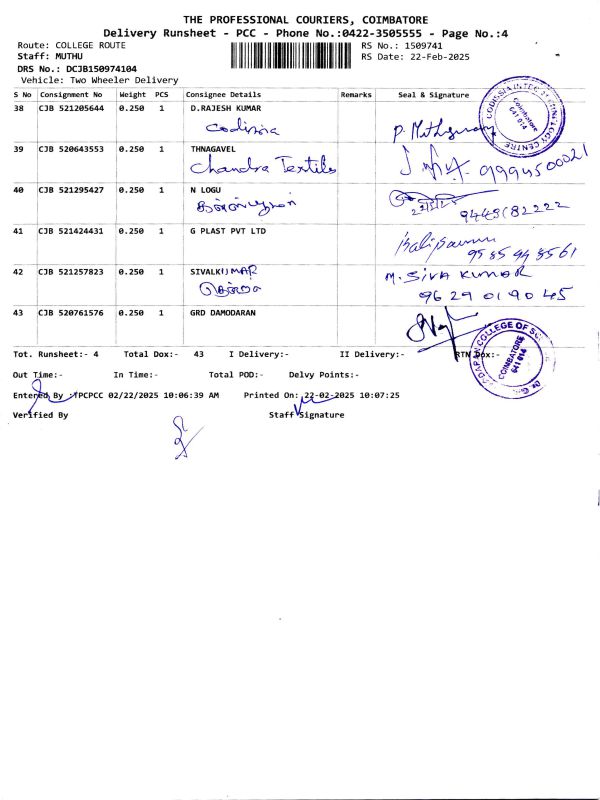 THE PROFESSIONAL COURIERS, COIMBATORE
Delivery Runsheet - PCC - Phone No.:0422-3505555 - Page No.:4
Route: COLLEGE ROUTE RS No.: 1509741
Staff: MUTHU RS Date: 22-Feb-2025
DRS No.: DCJB150974104
Vehicle: Two Wheeler Delivery
S No Consignment No Weight PCS Consignee Details Remarks Seal & Signature
38 CJB 521205644 0.250 1 D.RAJESH KUMAR
Codissia
COIMBATORE 641 014
39 CJB 520643553 0.250 1 THNAGAVEL
Chandra Textiles 9994500021
40 CJB 521295427 0.250 1 N LOGU
41 CJB 521424431 0.250 1 G PLAST PVT LTD
9585948561
42 CJB 521257823 0.250 1 SIVALKUMAR M. SIVA KUMAR
9629019045
43 CJB 520761576 0.250 1 GRD DAMODARAN
COIMBATORE 641 014
Tot. Runsheet:- 4 Total Dox:- 43 I Delivery:- II Delivery:- RTN Dox:-
Out Time:- In Time:- Total POD:- Delvy Points:-
Entered By :TPCPCC 02/22/2025 10:06:39 AM Printed On: 22-02-2025 10:07:25
Verified By Staff Signature